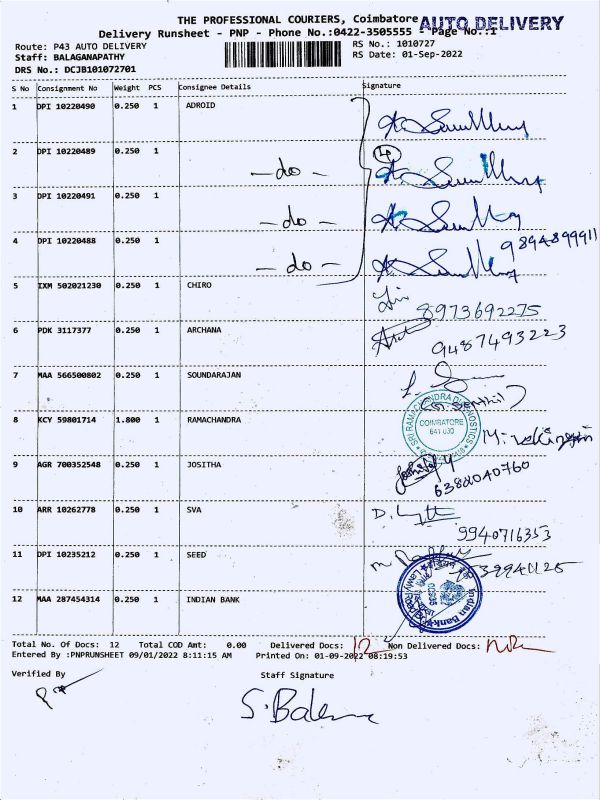 THE PROFESSIONAL COURIERS, Coimbatore AUTO DELIVERY
Delivery Runsheet - PNP - Phone No.:0422-3505555 - Page No.:1
Route: P43 AUTO DELIVERY RS No.: 1010727
Staff: BALAGANAPATHY RS Date: 01-Sep-2022
DRS No.: DCJB101072701
S No Consignment No Weight PCS Consignee Details Signature
1 DPI 10220490 0.250 1 ADROID
2 DPI 10220489 0.250 1 4
- do -
3 DPI 10220491 0.250 1
- do -
4 DPI 10220488 0.250 1 9894899911
- do -
5 IXM 502021230 0.250 1 CHIRO
8973692275
6 PDK 3117377 0.250 1 ARCHANA
9487493223
7 MAA 566500802 0.250 1 SOUNDARAJAN
8 KCY 59801714 1.800 1 RAMACHANDRA
SRI RAMACHANDRA DIAGNOSTICS
COIMBATORE
641 030
9 AGR 700352548 0.250 1 JOSITHA
6382040760
10 ARR 10262778 0.250 1 SVA
9940716353
11 DPI 10235212 0.250 1 SEED
12 MAA 287454314 0.250 1 INDIAN BANK
Indian Bank
Total No. Of Docs: 12 Total COD Amt: 0.00 Delivered Docs: 12 Non Delivered Docs:
Entered By :PNPRUNSHEET 09/01/2022 8:11:15 AM Printed On: 01-09-2022 08:19:53
Verified By Staff Signature